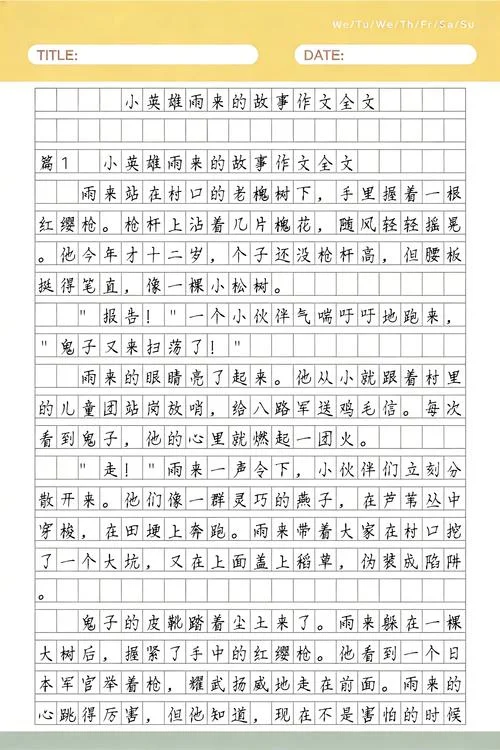 We/Tu/We/Th/Fr/Sa/Su
TITLE:
DATE:
小英雄雨来的故事作文全文
篇1 小英雄雨来的故事作文全文
雨来站在村口的老槐树下，手里握着一根
红缨枪。枪杆上沾着几片槐花，随风轻轻摇晃
。他今年才十二岁，个子还没枪杆高，但腰板
挺得笔直，像一棵小松树。
"报告！"一个小伙伴气喘吁吁地跑来，
"鬼子又来扫荡了！"
雨来的眼睛亮了起来。他从小就跟着村里
的儿童团站岗放哨，给八路军送鸡毛信。每次
看到鬼子，他的心里就燃起一团火。
"走！"雨来一声令下，小伙伴们立刻分
散开来。他们像一群灵巧的燕子，在芦苇丛中
穿梭，在田埂上奔跑。雨来带着大家在村口挖
了一个大坑，又在上面盖上稻草，伪装成陷阱
。
鬼子的皮靴踏着尘土来了。雨来躲在一棵
大树后，握紧了手中的红缨枪。他看到一个日
本军官举着枪，耀武扬威地走在前面。雨来的
心跳得厉害，但他知道，现在不是害怕的时候